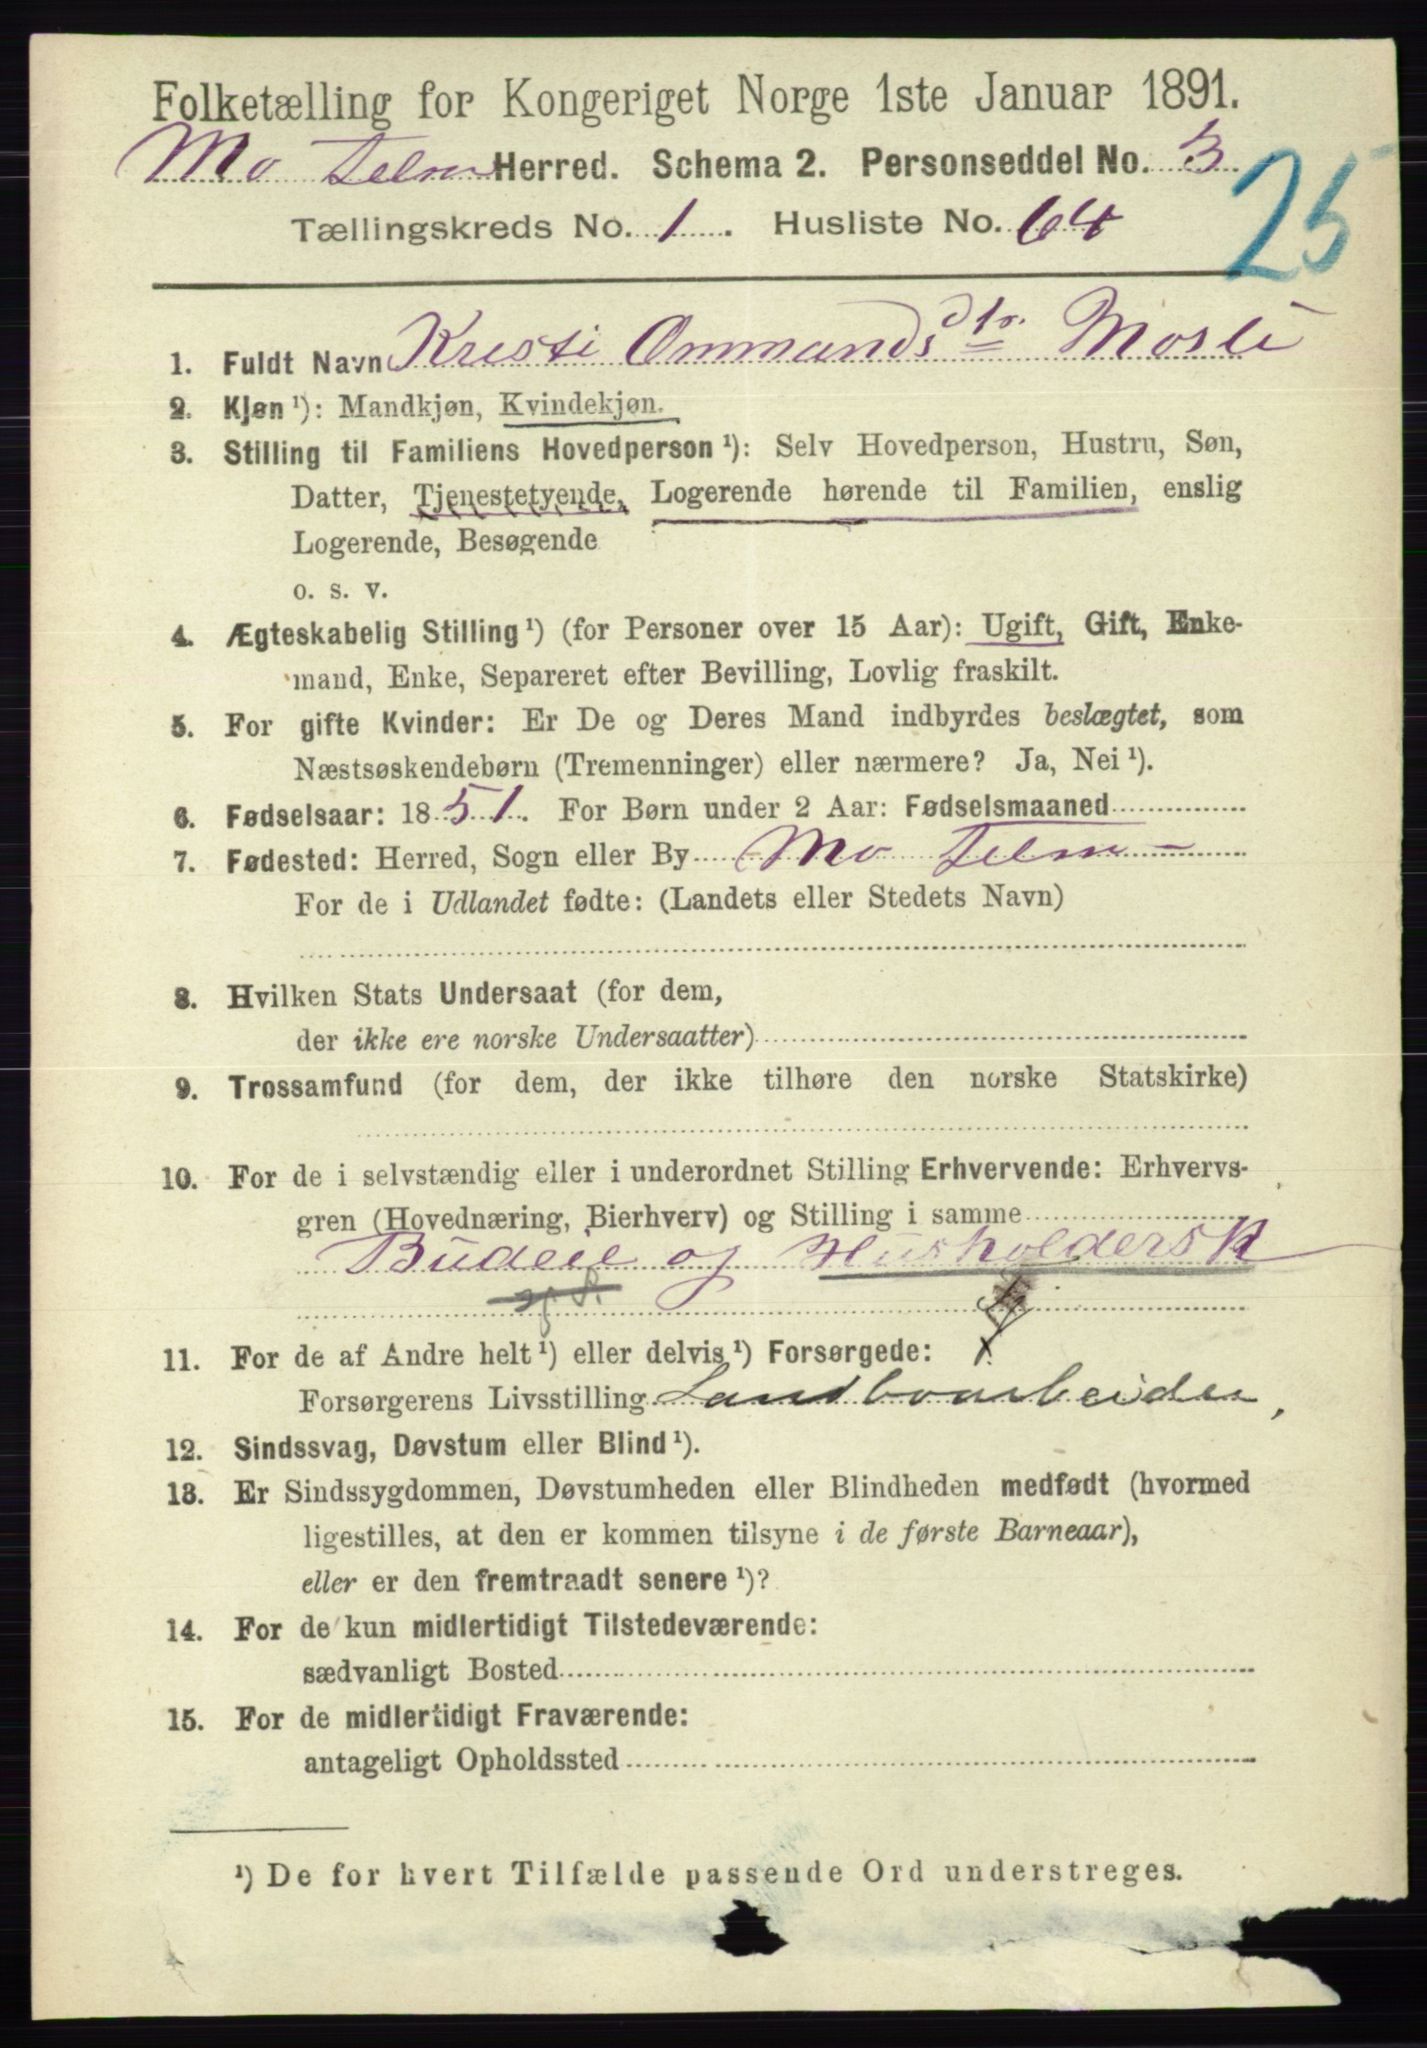 Folketælling for Kongeriget Norge 1ste Januar 1891.
Mo Telm Herred. Schema 2. Personseddel No. 3
Tællingskreds No. 1. Husliste No. 64
25
1. Fuldt Navn Kristi Ommundsdtr. Mosli
2. Kjøn ¹): Mandkjøn, Kvindekjøn.
3. Stilling til Familiens Hovedperson ¹): Selv Hovedperson, Hustru, Søn,
Datter, Tjenestetyende, Logerende hørende til Familien, enslig
Logerende, Besøgende
o. s. v.
4. Ægteskabelig Stilling ¹) (for Personer over 15 Aar): Ugift, Gift, Enke-
mand, Enke, Separeret efter Bevilling, Lovlig fraskilt.
5. For gifte Kvinder: Er De og Deres Mand indbyrdes beslægtet, som
Næstsøskendebørn (Tremenninger) eller nærmere? Ja, Nei ¹).
6. Fødselsaar: 1851. For Børn under 2 Aar: Fødselsmaaned
7. Fødested: Herred, Sogn eller By Mo Telm
For de i Udlandet fødte: (Landets eller Stedets Navn)
8. Hvilken Stats Undersaat (for dem,
der ikke ere norske Undersaatter)
9. Trossamfund (for dem, der ikke tilhøre den norske Statskirke)
10. For de i selvstændig eller i underordnet Stilling Erhvervende: Erhvervs-
gren (Hovednæring, Bierhverv) og Stilling i samme
Budeie og Husholdersk
11. For de af Andre helt ¹) eller delvis ¹) Forsørgede:
Forsørgerens Livsstilling Landboarbeider,
12. Sindssvag, Døvstum eller Blind ¹).
13. Er Sindssygdommen, Døvstumheden eller Blindheden medfødt (hvormed
ligestilles, at den er kommen tilsyne i de første Barneaar),
eller er den fremtraadt senere ¹)?
14. For de kun midlertidigt Tilstedeværende:
sædvanligt Bosted
15. For de midlertidigt Fraværende:
antageligt Opholdssted
¹) De for hvert Tilfælde passende Ord understreges.